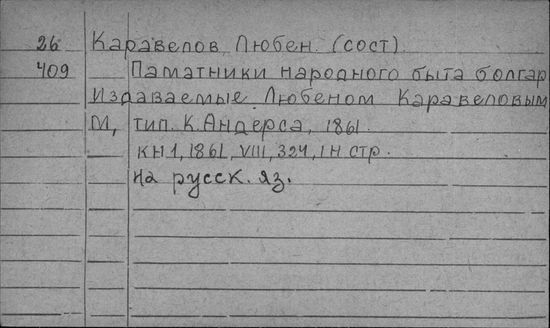 26 Каравелов, Любен. (сост).
409 Паматники народного быта болгар
Издаваемые Любеном Каравеловым
М, тип. К. Андерса, 1861.
кн 1, 1861, VIII, 324, 1 н стр.
на русск. яз.